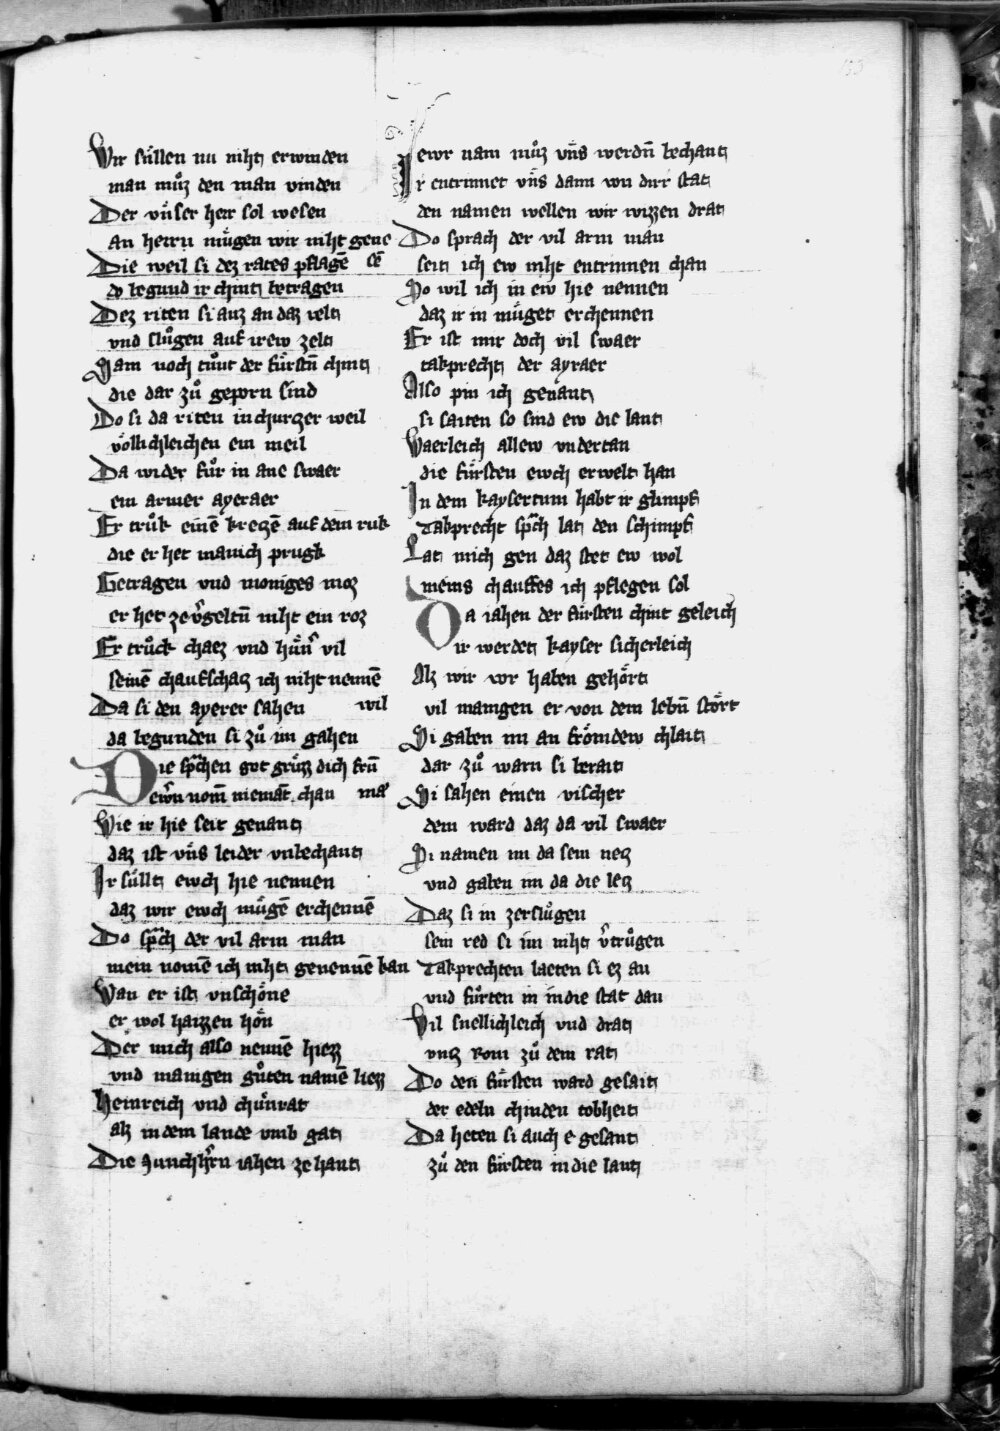 153
Wir süllen nu niht erwinden
man muͦz den man vinden
Der vnser herr sol wesen
An herrn muͤgen wir niht gene
Die weil si dez rates pflagē sē
do begund ir chint betragen
Dez riten si auz an daz velt
vnd sluͦgen auf irew zelt
Nam noch tuͦnt der fuͤrstn̄ chint
die dar zuͦ geporn sind
Do si da riten in churczer weil
voͤllichleichen ein meil
Da wider fuͦr in ane swaer
ein armer ayeraer
Er truͦk einē krezē auf dem ruk
die er het manich prugk
Getragen vnd moniges moz
er het ze v̄geltn̄ niht ein roz
Er truͦck chaez vnd huͤnr̄ vil
seinē chaufschacz ich niht nennē
Da si den ayerer sahen wil
da begunden si zuͦ im gahen
Die sp̄chen got gruͤzz dich frūn
ewr̄n nom̄ niemāt chan mer
Wie ir hie seit genant
daz ist vn̄s leider vnbechant
Ir süllt ewch hie nennen
daz wir ewch muͤgē erchennē
Do sp̄ch der vil arm man
mein nomē ich niht genennē kan
Wan er ist vnschoͤne
er wol haizzen hoͤn
Der mich also nennē hiezz
vnd manigen guͦten namē liezz
Heinreich vnd chuͦnrat
alz in dem lande vmb gat
Die Junchhr̄n iahen ze hant
ewr nam muͦz vn̄s werdn̄ bechant
Ir entrinnet vn̄s dann von dirr stat
den namen wellen wir wizzen drat
Do sprach der vil arm man
seit ich ew niht entrinnen chan
So wil ich in ew hie nennen
daz ir in muͤget erchennen
Er ist mir doch vil swaer
takprecht der ayraer
Also pin ich genant
si saiten so sind ew die lant
Waerleich allew vndertan
die fuͤrsten ewch erwelt han
In dem kaysertum habt ir glimpf
Takprecht sp̄ch lat den schimpf
Lat mich gen daz stet ew wol
meins chauffes ich pflegen sol
Da iahen der fuͤrsten chint geleich
ir werdet kayser sicherleich
Alz wir vor haben gehoͤrt
vil manigen er von dem lebn̄ stoͤrt
Si gaben im an froͤmdew chlait
dar zuͦ warn si berait
Si sahen einen vischer
dem ward daz da vil swaer
Si namen im da sein necz
vnd gaben im da die lecz
Daz si in zersluͦgen
sein red si im niht v̄truͦgen
Takprechten laeten si ez an
vnd fuͦrten in in die stat dan
Vil snellichleich vnd drat
vncz Rom zuͦ dem rat
Do den fuͤrsten ward gesait
der edeln chinden tobheit
Da heten si auch e gesant
zuͦ den fuͤrsten in die lant